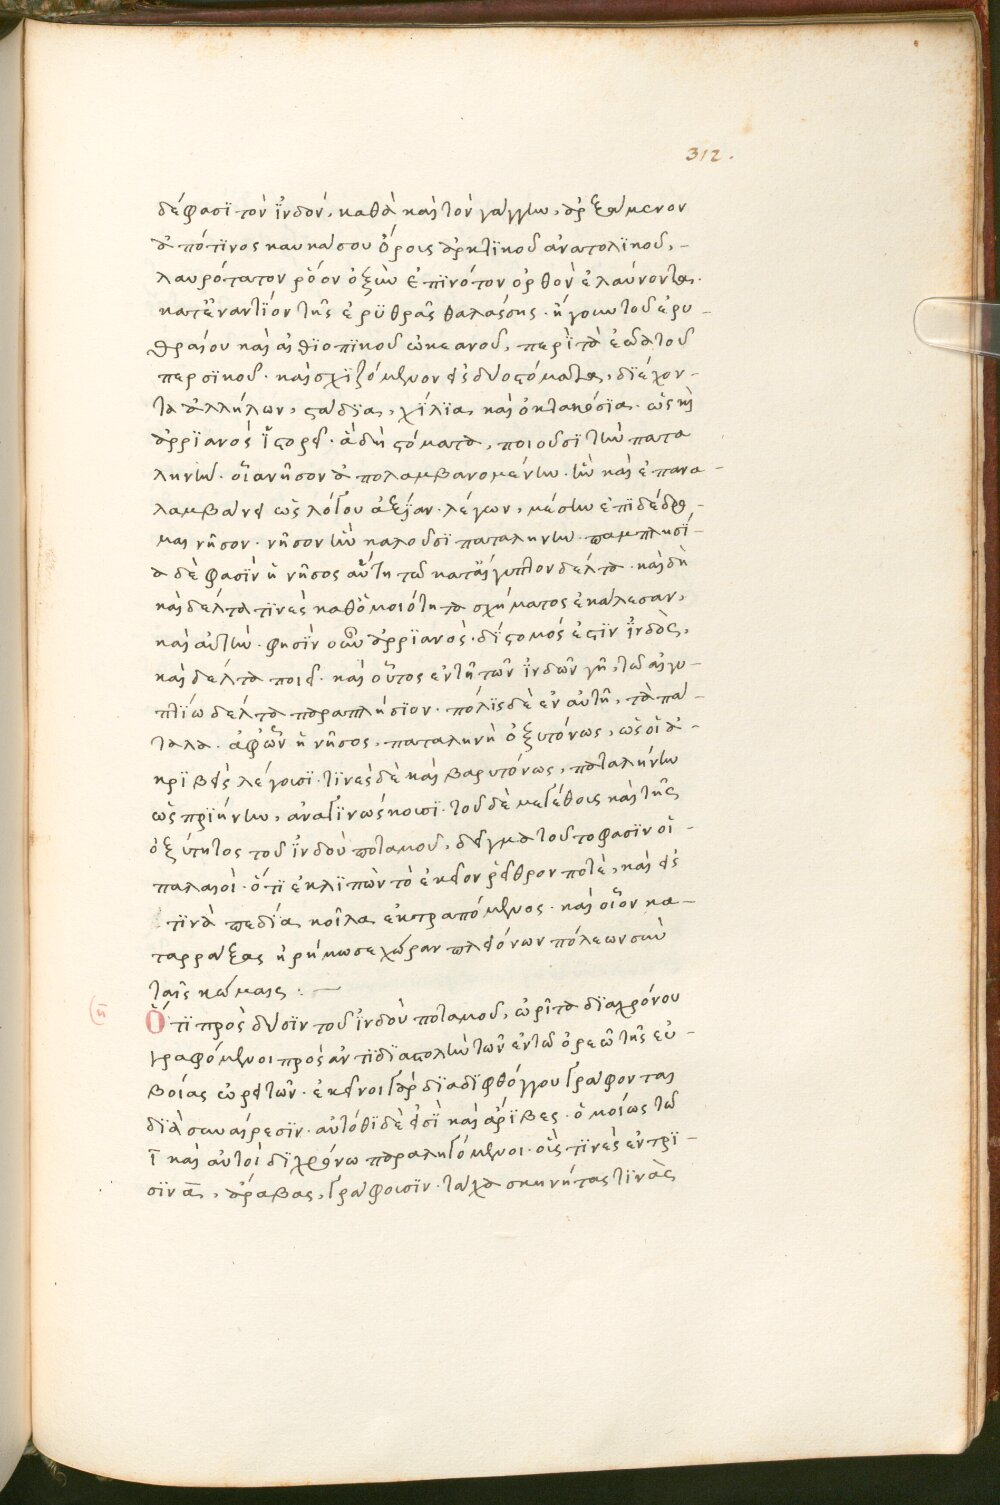 312.
δέ φασϊ τὸν ἶνδὸν, καθὰ καὶ τὸν γάγγην, ἀρξάμενον
ἀπό τϊνος καυκάσου ὄρους ἀρκτϊκοῦ ἀνατολϊκοῦ,-
λαυρότατον ῥόον ὀξὺν ἐπϊ νότον ὀρθὸν ἐλαύνοντα.
κατέναντϊόν τῆς ἐρϋθρᾶς θαλάσσης. ἤγουν τοῦ ἐρυ-
θραίου καὶ αἰθϊοπϊκοῦ ὠκεανοῦ, περὶ τὰ ἐῶα τοῦ
περσϊκοῦ. καὶ σχϊζόμενον εἰς δύο στόματα, δϊέχον-
τα ἀλλήλων, στάδϊα, χίλϊα καὶ ὀκτακόσϊα. ὡς καὶ
ἀρρϊανὸς ἵστορεῖ. ἃ δὴ στόματα, ποιοῦσϊ τὴν πατα
ληνὴν. οἷα νῆσον ἀπολαμβανομένην. ἣν καὶ ἐπανα-
λαμβάνει ὡς λόγου ἀξίαν. λέγων, μέσην ἐπϊδέδρο-
μαι νῆσον. νῆσον ἣν καλοῦσϊ παταληνὴν. παμπλησί-
α δὲ φασϊν ἡ νῆσος αὕτη τῶ κατ' αἴγυπτον δέλτα. καὶ δὴ
καὶ δέλτα τϊνὲς καθ' ὁμοιότητα σχήματος ἐκάλεσαν,
καὶ αὐτὴν. φησϊν οὖν ἀρρϊανὸς. δίστομός ἐστϊν ἶνδὸς,
καὶ δέλτα ποιεῖ. καὶ οὗτος ἐν τῇ τῶν ἶνδῶν γῆ, τῶ αἰγυ-
πτίω δέλτα παραπλήσϊον. πόλϊς δὲ ἐν αὐτῆ, τὰ πά-
ταλα. ἀφ' ὧν ἡ νῆσος, παταληνὴ ὀξυτόνως, ὡς οἱ ἀ-
κρϊβεῖς λέγουσϊ. τϊνὲς δὲ καὶ βαρυτόνως, παταλήνην
ὡς πρϊήνην, ἀναγϊνώσκουσϊ. τοῦ δὲ μεγέθους καὶ τῆς
ὀξύτητος τοῦ ἶνδοὺ ποταμοῦ, δεῖγμα τοῦτο φασϊν οἱ-
παλαιοὶ. ὅτϊ ἐκλϊπὼν τὸ ἐκεῖνον ῥεῖθρον ποτὲ, καὶ εἰς
τϊνὰ πεδία κοῖλα ἐκτραπόμενος. καὶ οἷον κα-
ταρράξας ἠρήμωσε χώραν πλειόνων πόλεων σὺν
ταῖς κώμαις :. —
(η
Ὅτϊ πρὸς δύσϊν τοῦ ἶνδοὺ ποταμοῦ, ὠρῖται δϊαχρόνου
γραφόμενοι πρὸς ἀντϊδϊαστολὴν τῶν ἐν τῶ ὀρεῶ τῆς εὐ-
βοίας ὠρειτῶν. ἐκεῖνοι γὰρ δϊα δϊφθόγγου γράφονται
δϊὰ συναίρεσϊν. αὐτόθϊ δὲ εἰσϊ καὶ ἀρϊβες. ὁμοίως τῶ
ῑ καὶ αὐτοὶ δϊχρόνω παραληγόμενοι. οἵς τϊνὲς ἐν τρϊ-
σϊν ᾱ, ἀραβας, γράφουσϊν. τάχα σκηνήτας τϊνὰς